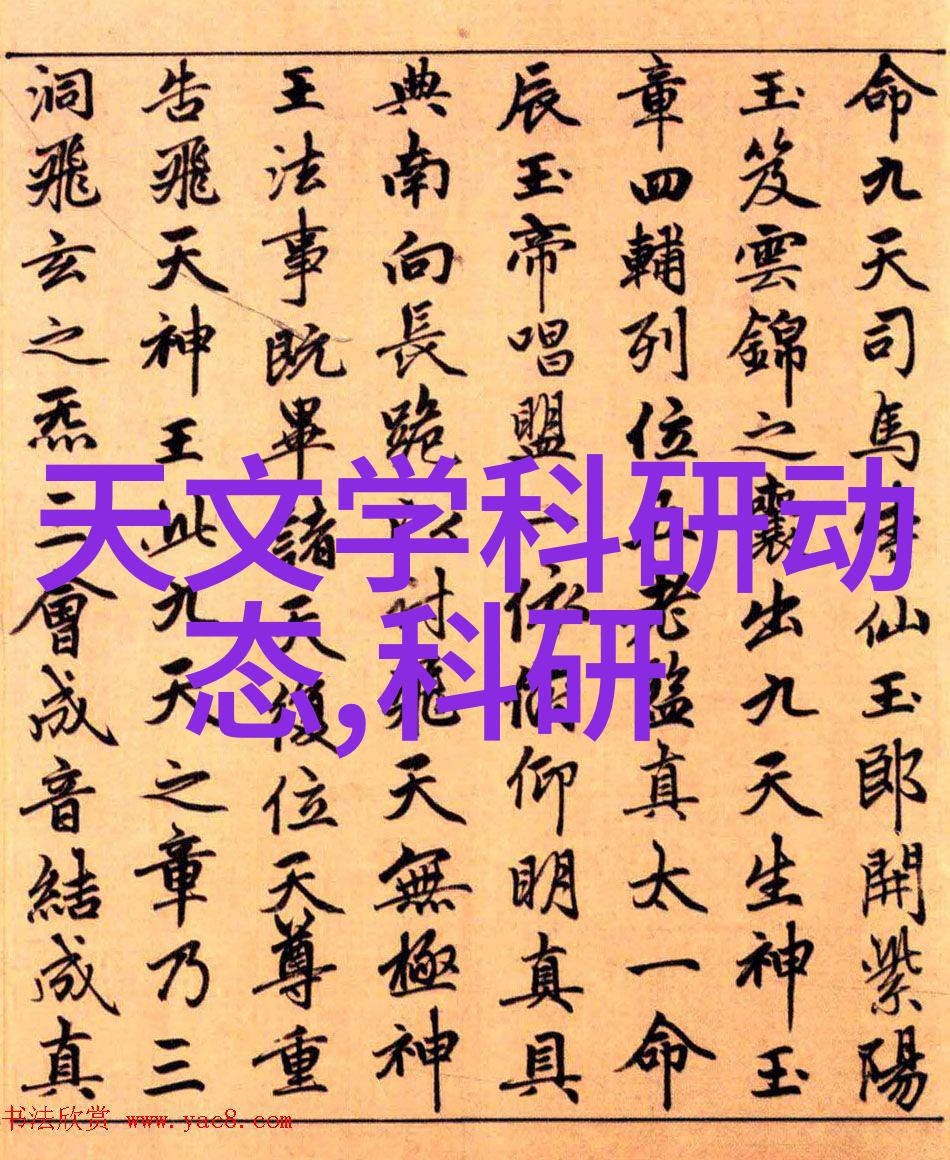 命九天司馬仙玉郎開紫陽
玉笈雲錦之囊出九天生神玉
章四輔列位五老監真太一命
辰玉帝唱盟一依仰明真具
典南向長跪飛天無極神
王法事既畢諸天復位天尊重
告飛天神王此九天之章乃三
洞飛玄之炁三會成音結成真
天文学科研动
态,科研
书法欣赏 www.yac8.com